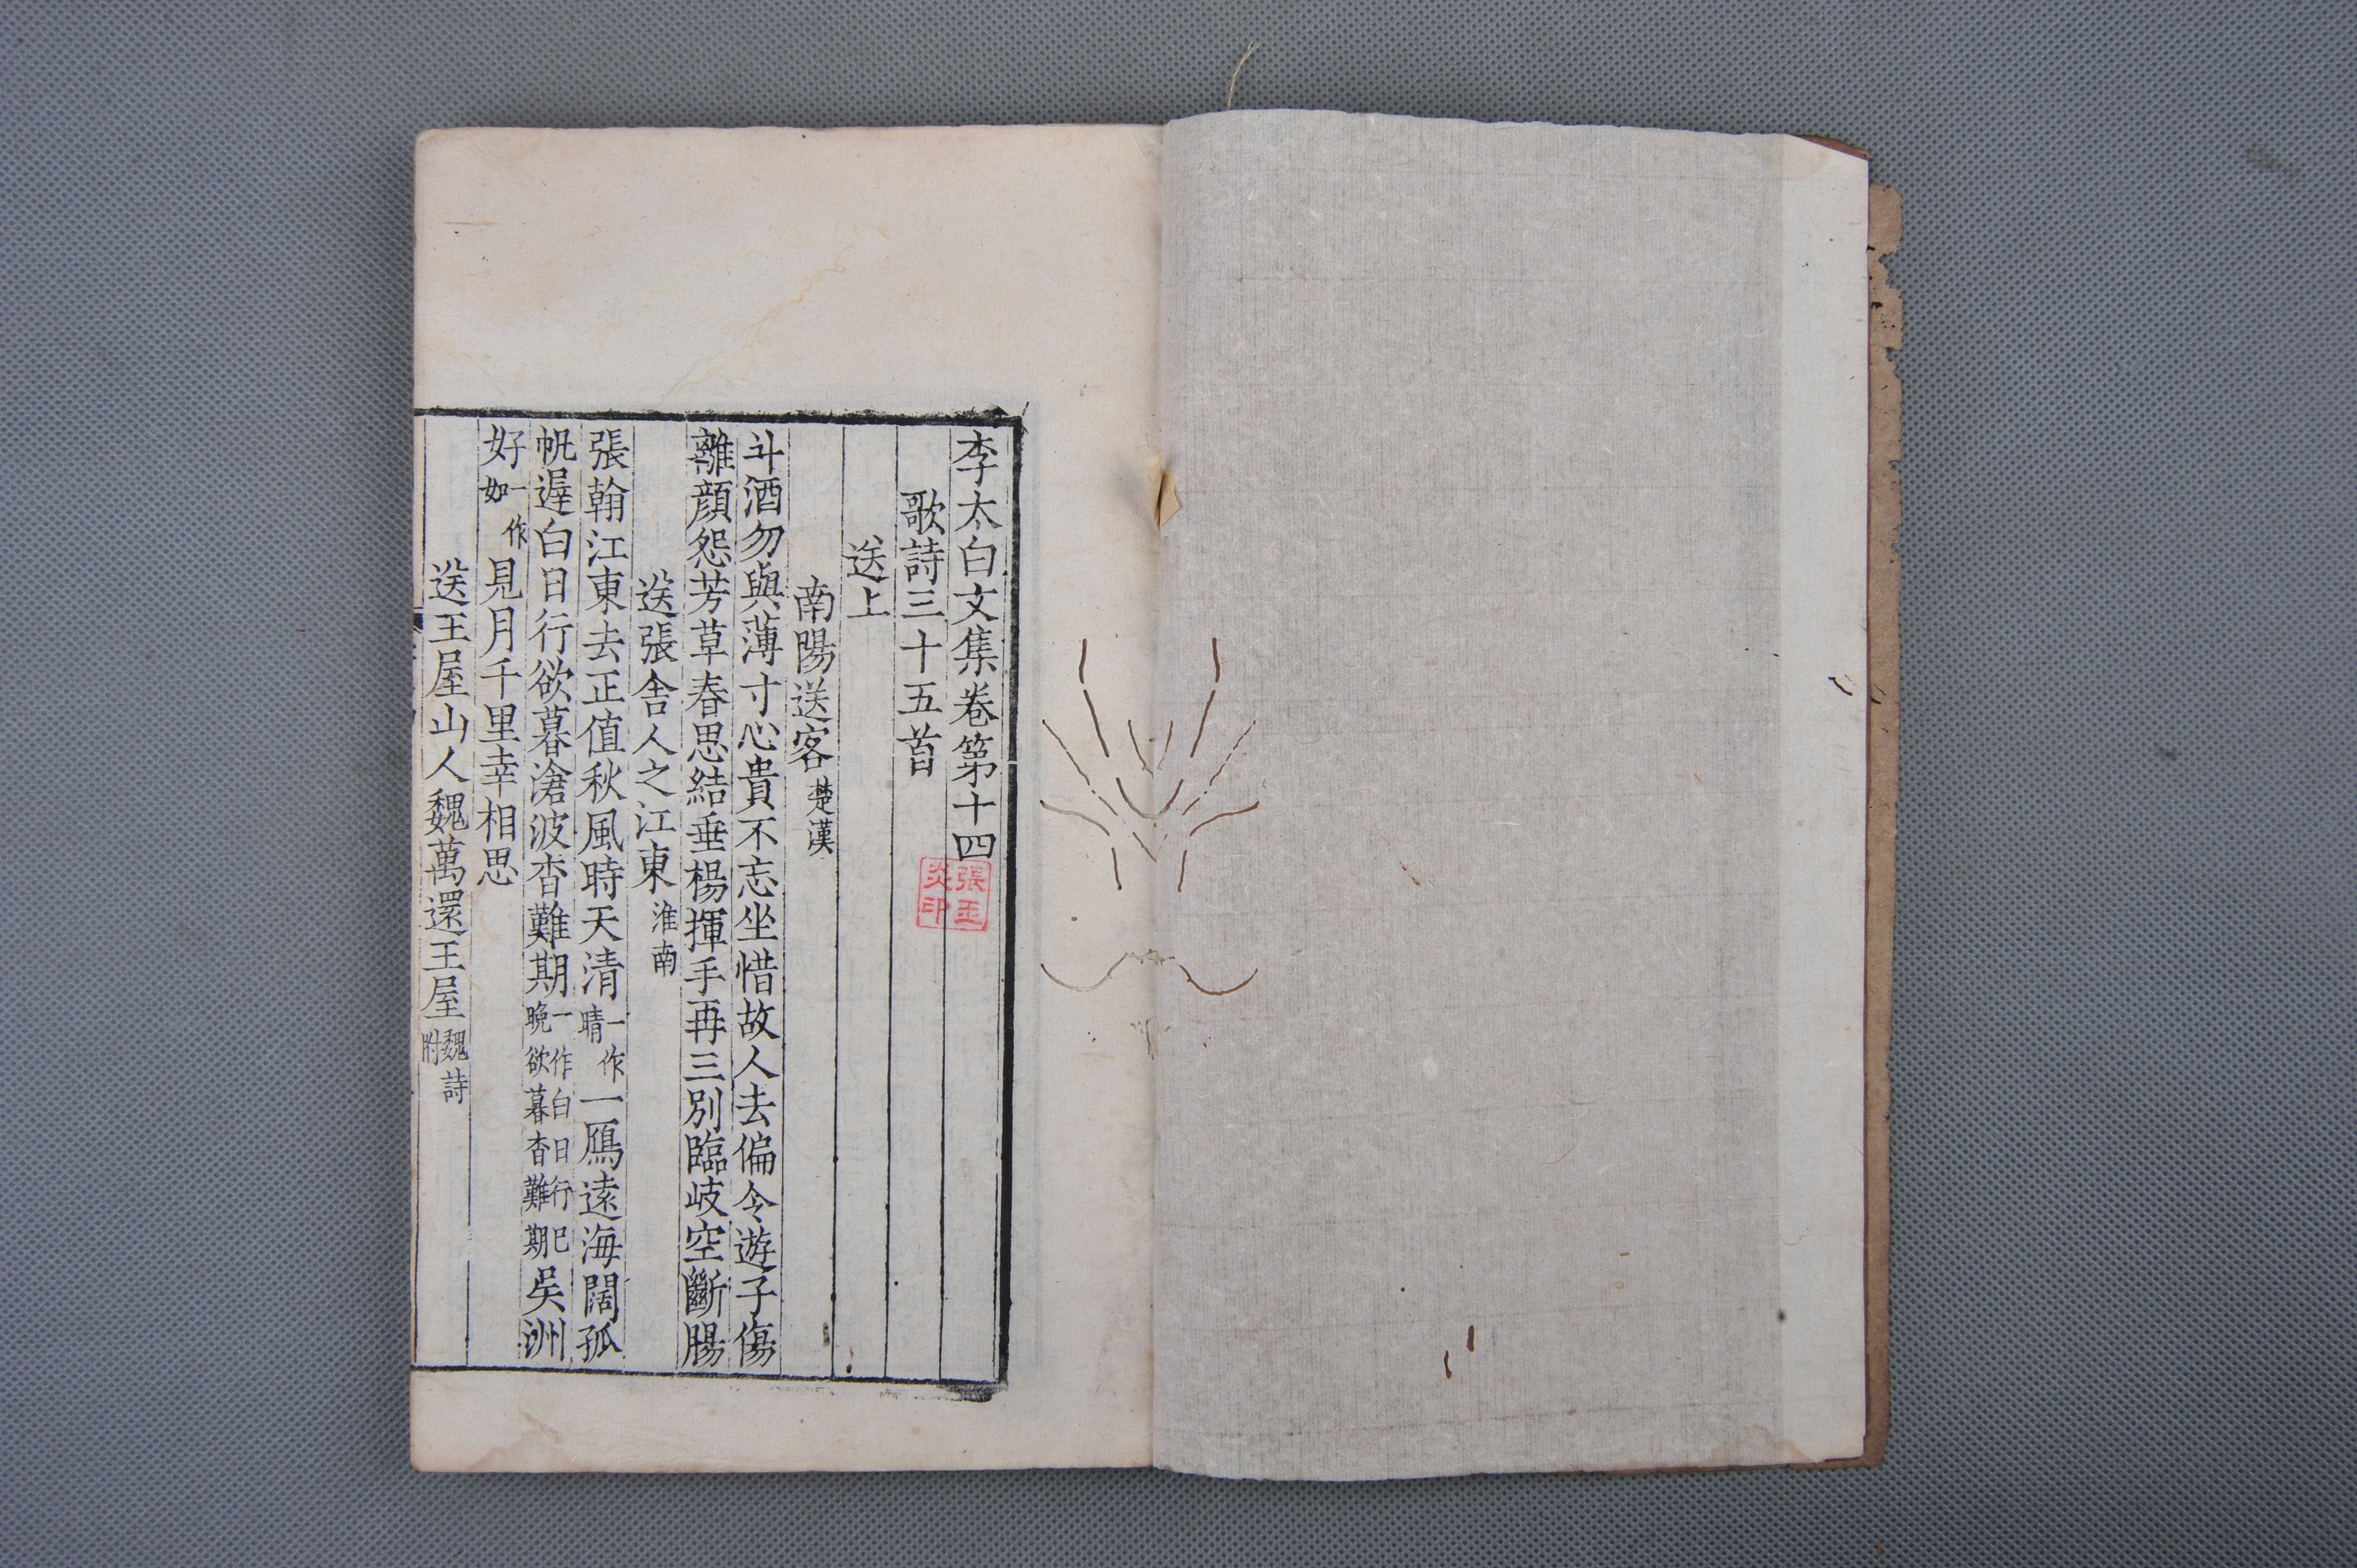 李太白文集卷第十四
張玉
炎印
歌詩三十五首
送上
南陽送客楚漢
斗酒勿與薄寸心貴不忘坐惜故人去偏令遊子傷
離顔怨芳草春思結垂楊揮手再三別臨岐空斷腸
送張舍人之江東淮南
張翰江東去正值秋風時天清一作晴一鴈遠海闊孤
帆遲白日行欲暮滄波杳難期一作白日行已晚欲暮杳難期吴洲
好一作如見月千里幸相思
送王屋山人魏萬還王屋魏詩附